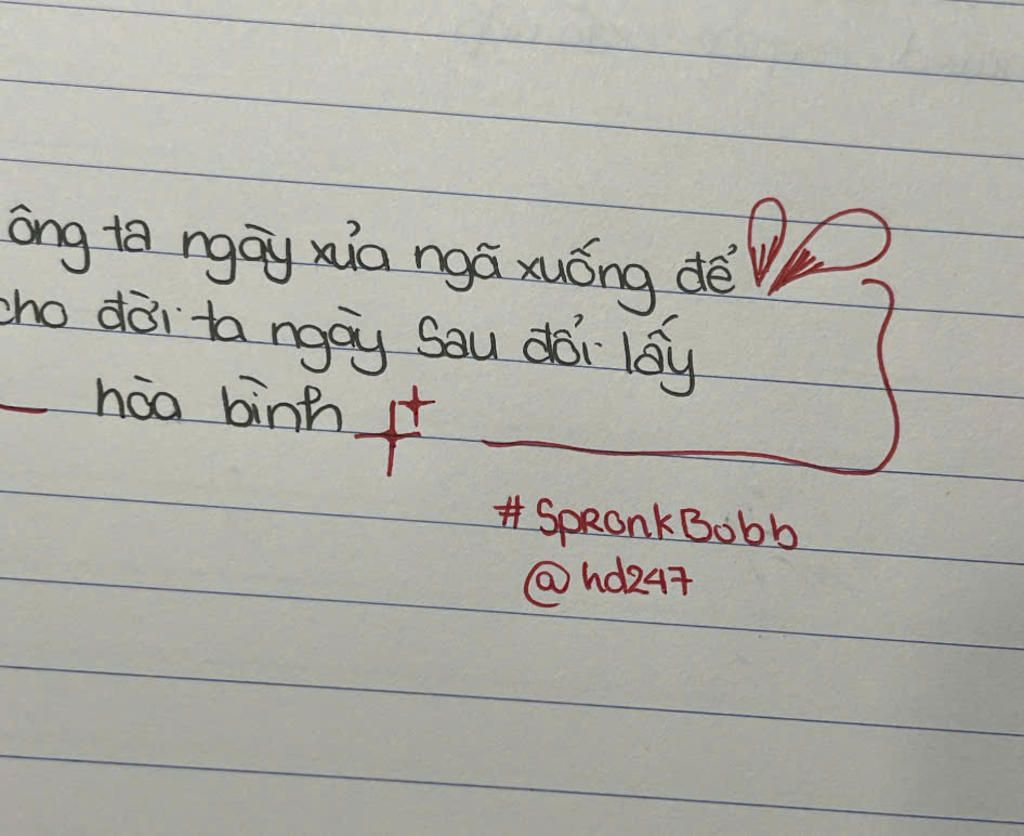 ông ta ngày xủa ngã xuống để
cho đời ta ngày sau đổi lấy
hòa bình
#SpRonkBobb
@hd247